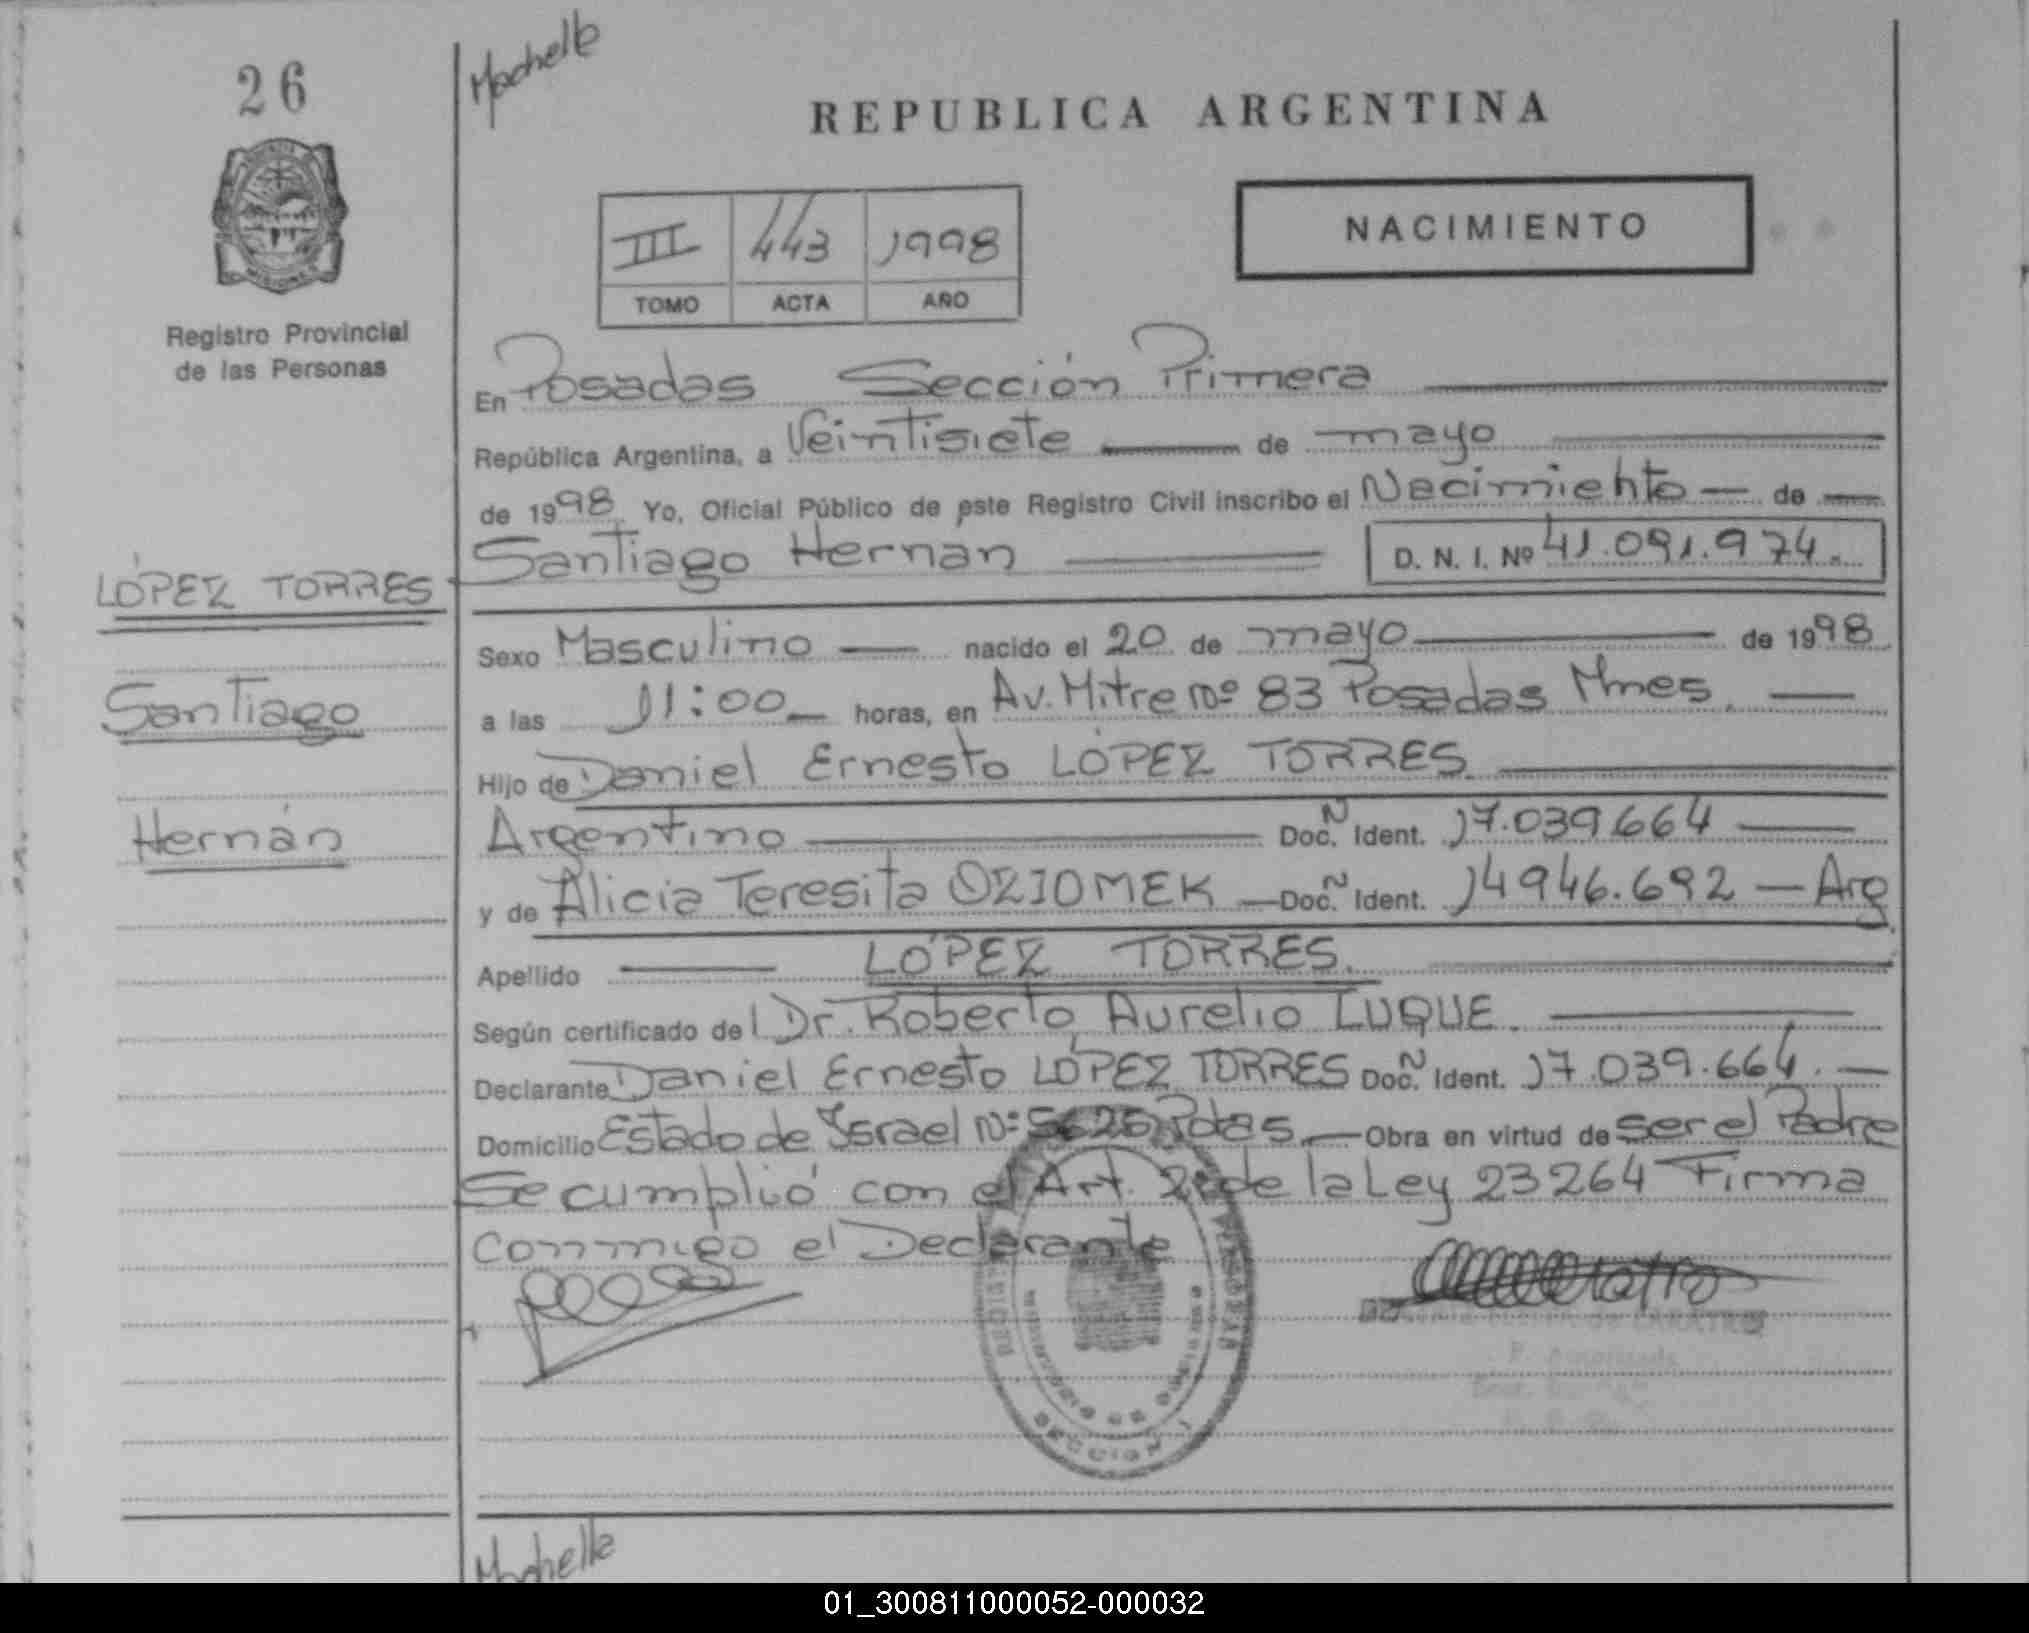 26
Mochelle
REPUBLICA ARGENTINA
III 443 1998
TOMO ACTA AÑO
NACIMIENTO
Registro Provincial
de las Personas
En Posadas Sección Primera
República Argentina, a Veintisiete de mayo
de 1998 Yo, Oficial Público de este Registro Civil inscribo el Nacimiento de
Santiago Hernan D. N. I. Nº 41.091.974.
LÓPEZ TORRES
Santiago
Hernán
Sexo Masculino nacido el 20 de mayo de 1998
a las 11:00 horas, en Av. Mitre Nº 83 Posadas Mnes.
Hijo de Daniel Ernesto LÓPEZ TORRES
Argentino Doc. N Ident. 17.039.664
y de Alicia Teresita DZIOMEK Doc. N Ident. 14946.692 Arg
Apellido LÓPEZ TORRES.
Según certificado del Dr. Roberto Aurelio LUQUE.
Declarante Daniel Ernesto LÓPEZ TORRES Doc. N Ident. 17.039.664.
Domicilio Estado de Israel Nº Pdas. Obra en virtud de ser el Padre
Se cumplió con el Art. 2º de la Ley 23264 Firma
conmigo el Declarante
SECCION
Mochelle
01_300811000052-000032